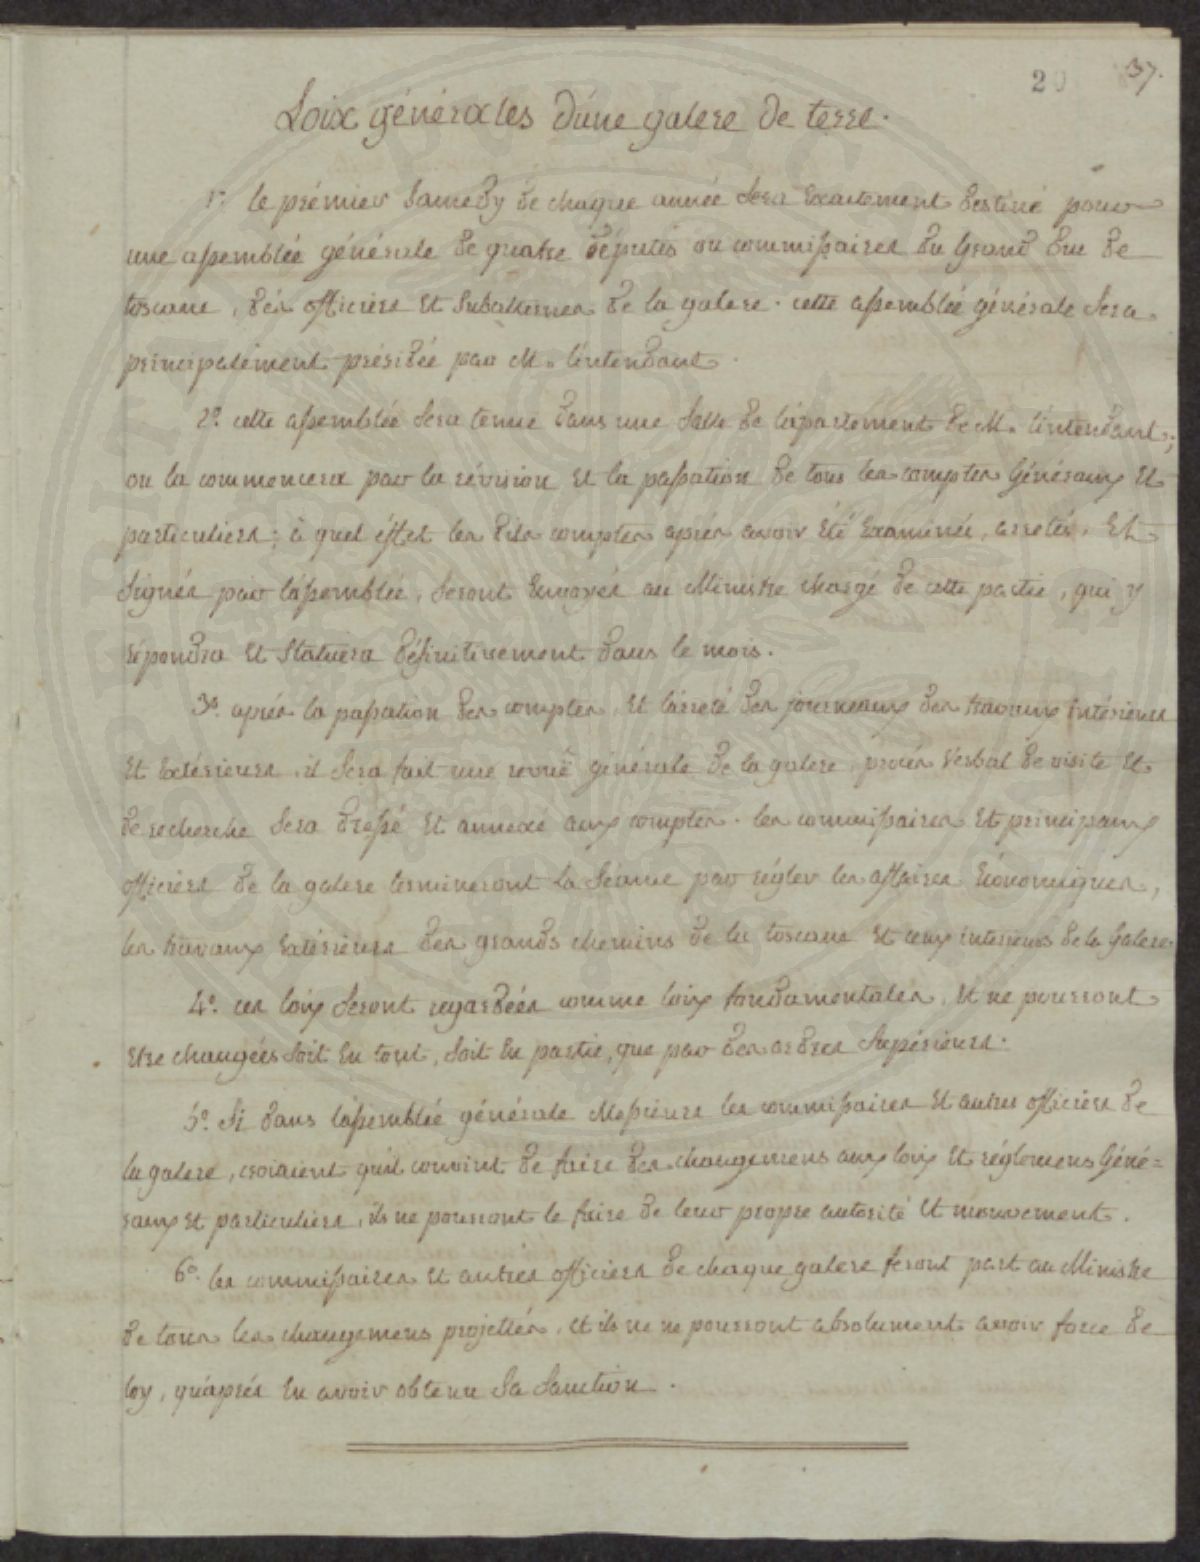 20 37.
Loix générales d'une galere de terre.
1º. le prémier Samedy de chaque année Sera Exactement destiné pour
une assemblée générale de quatre députés ou commissaires du Grand duc de
toscane, dés officiers Et Subalternes de la galere. cette assemblée générale Sera
principalement présidée par M. l'intendant.
2º. cette assemblée Sera tenue dans une Salle de l'apartement de M. l'intendant;
on la commencera par la révision Et la passation de tous les comptes Généraux Et
particuliers; à quel éffet les dits comptes aprés avoir été Examinés, arretés, Et
Signés par l'assemblée, Seront Envoyés au Ministre chargé de cette partie, qui y
répondra Et Statuera définitivement dans le mois.
3º. aprés la passation des comptes, Et l'arreté des journeaux des travaux intérieurs
Et Extérieurs, il Sera fait une revuë générale de la galere, procés verbal de visite Et
de recherche Sera dressé Et annexé aux comptes. les commissaires Et principaux
officiers de la galere termineront la Séance par régler les affaires Economiques,
les travaux Extérieurs des grands chemins de la toscane Et ceux interieurs de la Galere.
4º. ces loix Seront regardées comme loix fondamentales, Et ne pourront
Etre changées Soit En tout, Soit En partie, que par des ordres Supérieurs.
5º. Si dans l'assemblée générale Messieurs les commissaires Et autres officiers de
la galere, croiaient qu'il convint de faire des changemens aux loix Et réglemens Géné=
raux Et particuliers, ils ne pourront le faire de leur propre autorité Et mouvement.
6º. les commissaires Et autres officiers de chaque galere feront part au Ministre
de tous les changemens projettés, Et ils ne ne pourront absolument avoir force de
loy, qu'aprés En avoir obtenu Sa Sanction.